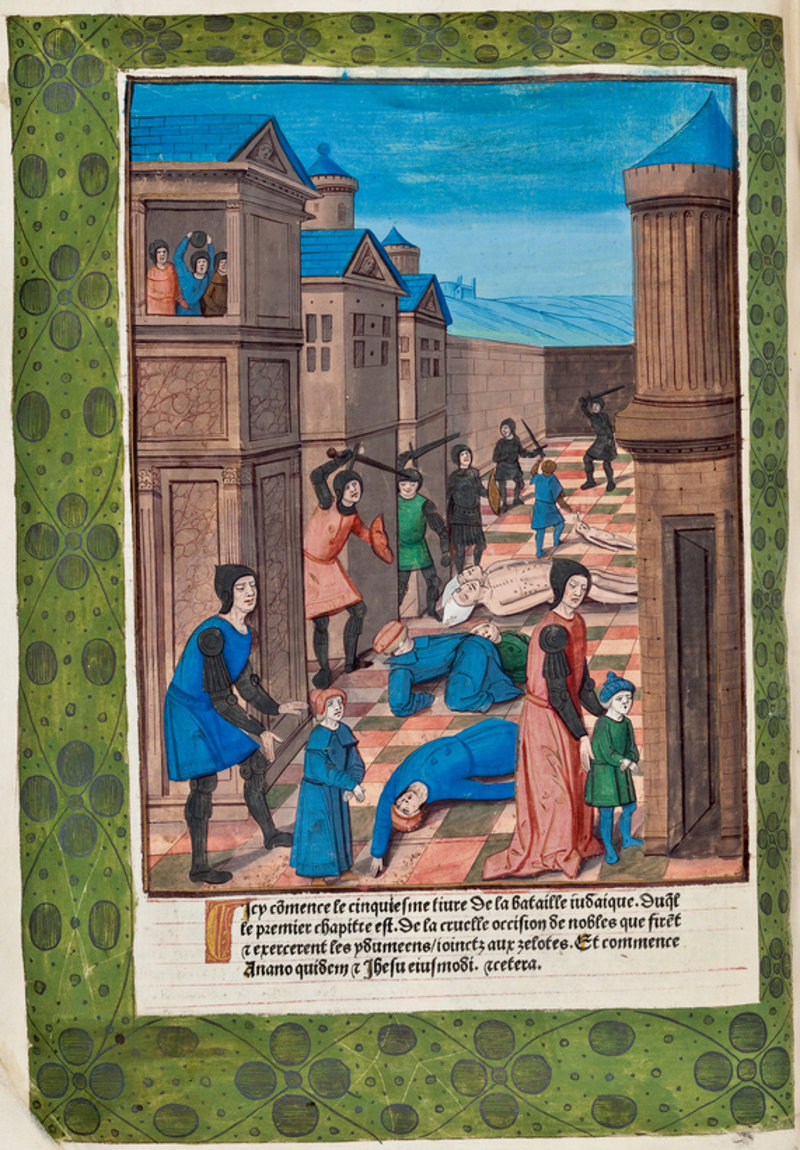 Icy cõmence le cinquiesme livre de la bataille iudaique. Duq̃l
le premier chapitre est. De la cruelle occision de nobles que firẽt
⁊ exercerent les ydumeens/ioinctz aux zelotes. Et commence
Anano quidem ⁊ Jhesu eiusmodi. ⁊cetera.